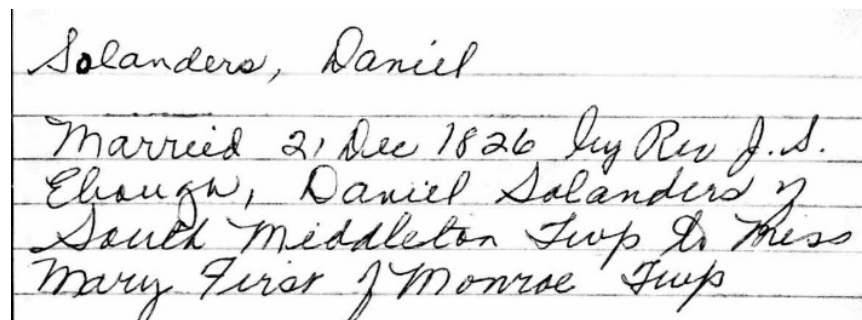 Solanders, Daniel
Married 21 Dec 1826 by Rev J.S.
Ebough, Daniel Solanders of
South Middleton Twp to Miss
Mary First of Monroe Twp